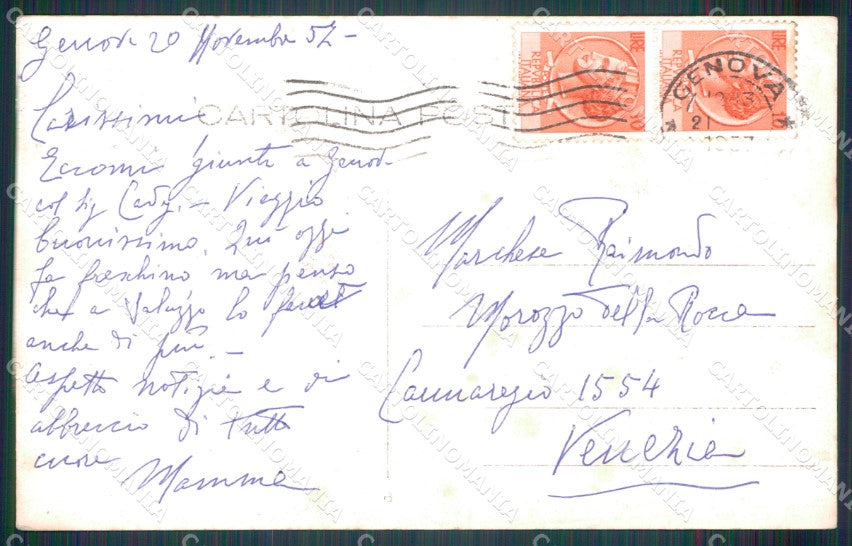 Genova 20 Novembre 57-
Carissimi
Eccomi giunta a Genova
col sig Cady. - Viaggio
buonissimo. Qui oggi
fa freschino ma penso
che a Saluzzo lo farete
anche di più. -
aspetto notizie e vi
abbraccio di tutto
cuore
Mamma
CARTOLINA POST
LIRE
REPUBBLICA
ITALIANA
LIRE
REPUBBLICA
ITALIANA
GENOVA
21
1957
Marchese Raimondo
Morozzo Della Rocca
Cannaregio 1554
Venezia
CARTOLINOMANIA